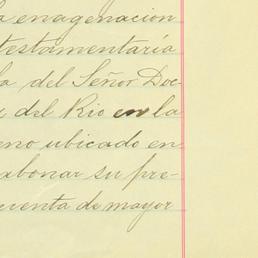 a enagenacion
testamentaría
la del Señor Doc-
del Rio en la
eno ubicado en
abonar su pre-
cuenta de mayor